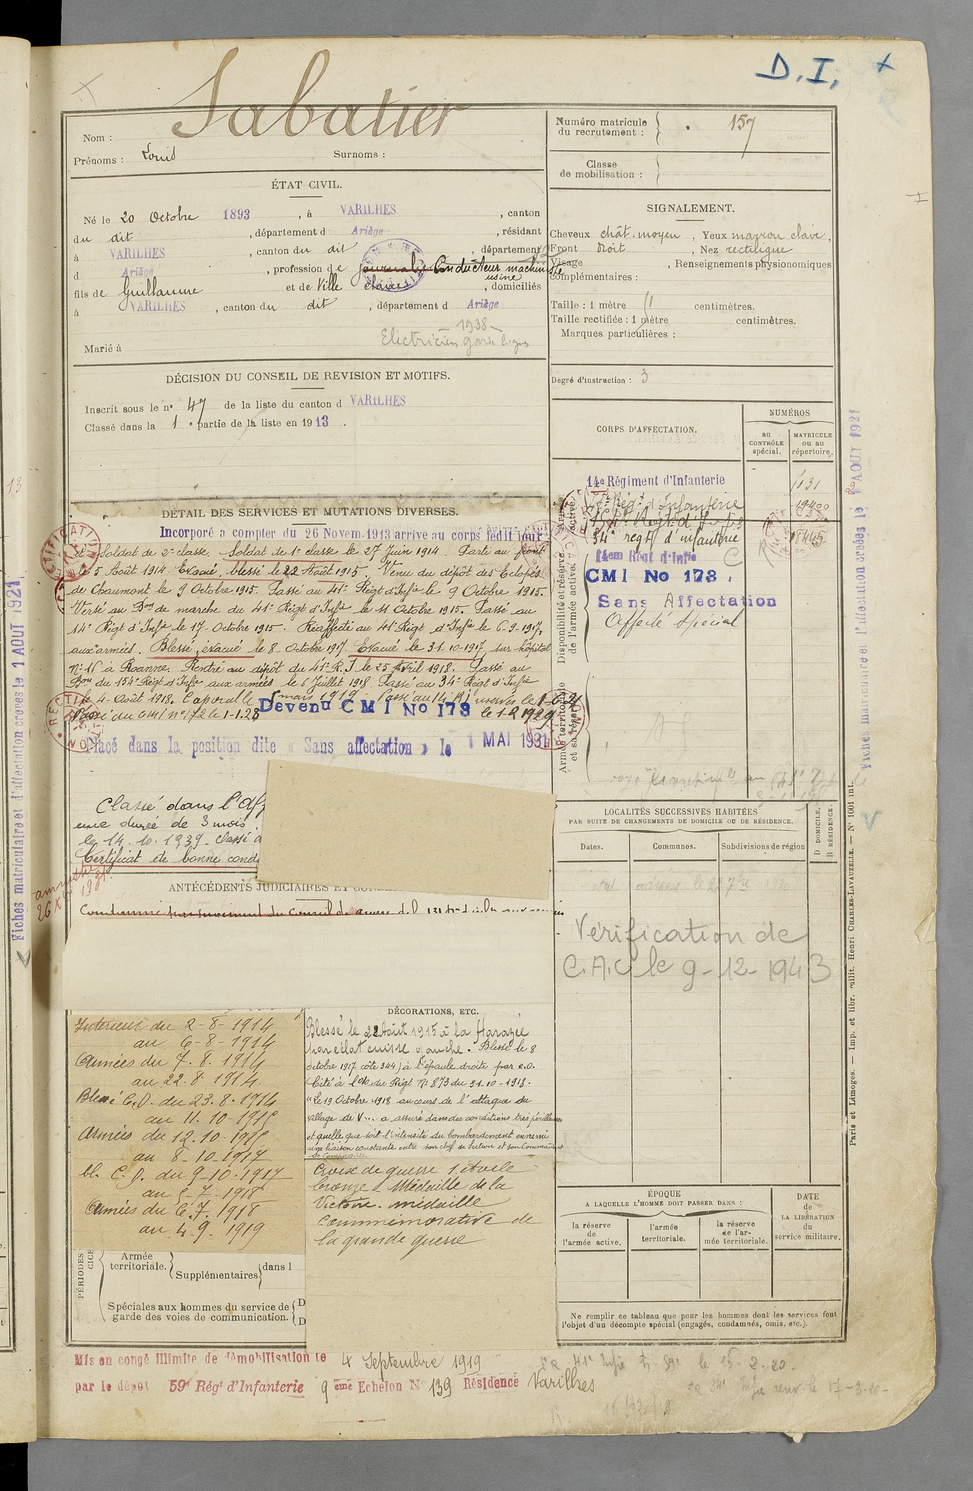 D. I. +
Sabatier
Nom :
Prénoms : Louis Surnoms :
Numéro matricule
du recrutement : 157
Classe
de mobilisation :
ÉTAT CIVIL.
Né le 20 Octobre 1893, à VARILHES, canton
du dit, département d Ariège, résidant
à VARILHES, canton du dit, département
d Ariège, profession de journalier Conducteur machiniste
usine
fils de Guillaume et de Ville Claire, domiciliés
à VARILHES, canton du dit, département d Ariège
— 1938 —
Electricien
Marié à
SIGNALEMENT.
Cheveux chât. moyen, Yeux marron clair,
Front Droit, Nez rectiligne
Visage , Renseignements physionomiques
complémentaires :
Taille : 1 mètre centimètres.
Taille rectifiée : 1 mètre centimètres.
Marques particulières :
Degré d'instruction : 3
DÉCISION DU CONSEIL DE REVISION ET MOTIFS.
Inscrit sous le nº 47 de la liste du canton d VARILHES
Classé dans la 1e partie de la liste en 1913.
CORPS D'AFFECTATION.
NUMÉROS
au
CONTRÔLE
spécial.
MATRICULE
ou au
répertoire.
14e Régiment d'Infanterie
Régt d'infanterie
34e régt d'infanterie
14em Régt d'Infie
CMI No 173.
Sans Affectation
Affecté Spécial
Disponibilité et réserve
de l'armée active.
Armée territoriale
et sa réserve.
DÉTAIL DES SERVICES ET MUTATIONS DIVERSES.
Incorporé à compter du 26 Novem. 1913 arrive au corps ledit jour
et Soldat de 2e classe. Soldat de 1e classe le 27 Juin 1914. Parti au front
le 5 Août 1914. Evacué, blessé le 22 Août 1915. Venu du dépôt des Eclopés
de Chaumont le 9 Octobre 1915. Passé au 41e Régt d'Infie le 9 Octobre 1915.
Versé au Bon de marche du 41e Régt d'Infie le 11 Octobre 1915. Passé au
14e Régt d'Infie le 17 Octobre 1915. Réaffecté au 41e Régt d'Infie le 6.9.1917,
aux armées. Blessé, évacué le 8 Octobre 1917. Evacué le 31.10.1917 sur hôpital
Nº 16 à Roanne. Rentré au dépôt du 41e R.I le 25 Avril 1918. Passé au
Bon du 154e Régt d'Infie aux armées le 6 Juillet 1918. Passé au 34e Régt d'Infie
le 4 Août 1918. Caporal le 5 mars 1919. Passé au 14e RI
Passé du CMI nº 172 le 1-1.28 Devenu CMI No 173 le 1-2 1929
Placé dans la position dite « Sans affectation » le 1 MAI 1931
Classé dans l'Aff
une durée de 3 mois
le 14.10.1939. Classé
Certificat de bonne condu
amnistie
ANTÉCÉDENTS JUDICIAIRES ET
Condamné
LOCALITÉS SUCCESSIVES HABITÉES
PAR SUITE DE CHANGEMENTS DE DOMICILE OU DE RÉSIDENCE.
Dates. Communes. Subdivisions de région
D DOMICILE.
R RÉSIDENCE.
Vérification de
C.A.C le 9-12-1943
Intérieur du 2-8-1914
au 6-8-1914
Armées du 7.8.1914
au 22.8.1914.
Blessé C.D. du 23.8.1914
au 11.10.1915
Armées du 12.10.1915
au 8-10.1917
bl. C.D. du 9-10-1917
au 5-7-1918
Armées du 6.7.1918
au 4.9.1919
DÉCORATIONS, ETC.
Blessé le 22 Août 1915 à la Harazée
par éclat cuisse gauche. Blessé le 8
octobre 1917 côte 344) à l'épaule droite par e.o.
Cité à l'Odre du Régt Nº 873 du 31.10-1918.
"Le 19 Octobre 1918 au cours de l'attaque du
village de V... a assuré dans des conditions très périlleuses
et quelle que soit l'intensité du bombardement ennemi
une liaison constante entre son chef de Section et son Commandant
de Compagnie
Croix de guerre 1 étoile
bronze. Médaille de la
Victoire. médaille
commémorative de
la grande guerre
PÉRIODES
Armée
territoriale. Supplémentaires dans l
Spéciales aux hommes du service de
garde des voies de communication.
ÉPOQUE
A LAQUELLE L'HOMME DOIT PASSER DANS :
la réserve
de
l'armée active.
l'armée
territoriale.
la réserve
de l'ar-
mée territoriale.
DATE
de
LA LIBÉRATION
du
service militaire.
Ne remplir ce tableau que pour les hommes dont les services font
l'objet d'un décompte spécial (engagés, condamnés, omis, etc.).
Mis en congé illimité de démobilisation le 4 Septembre 1919
par le dépôt 59e Régt d'Infanterie 9 ème Echelon No 139 Résidence Varilhes
Fiches matriculaire et d'affectation créées le 1 AOUT 1921
Fiches matriculaire et d'affectation créées le 1 AOUT 1921
Paris et Limoges. — Imp. et libr. milit. Henri CHARLES-LAVAUZELLE. — Nº 1001 int.